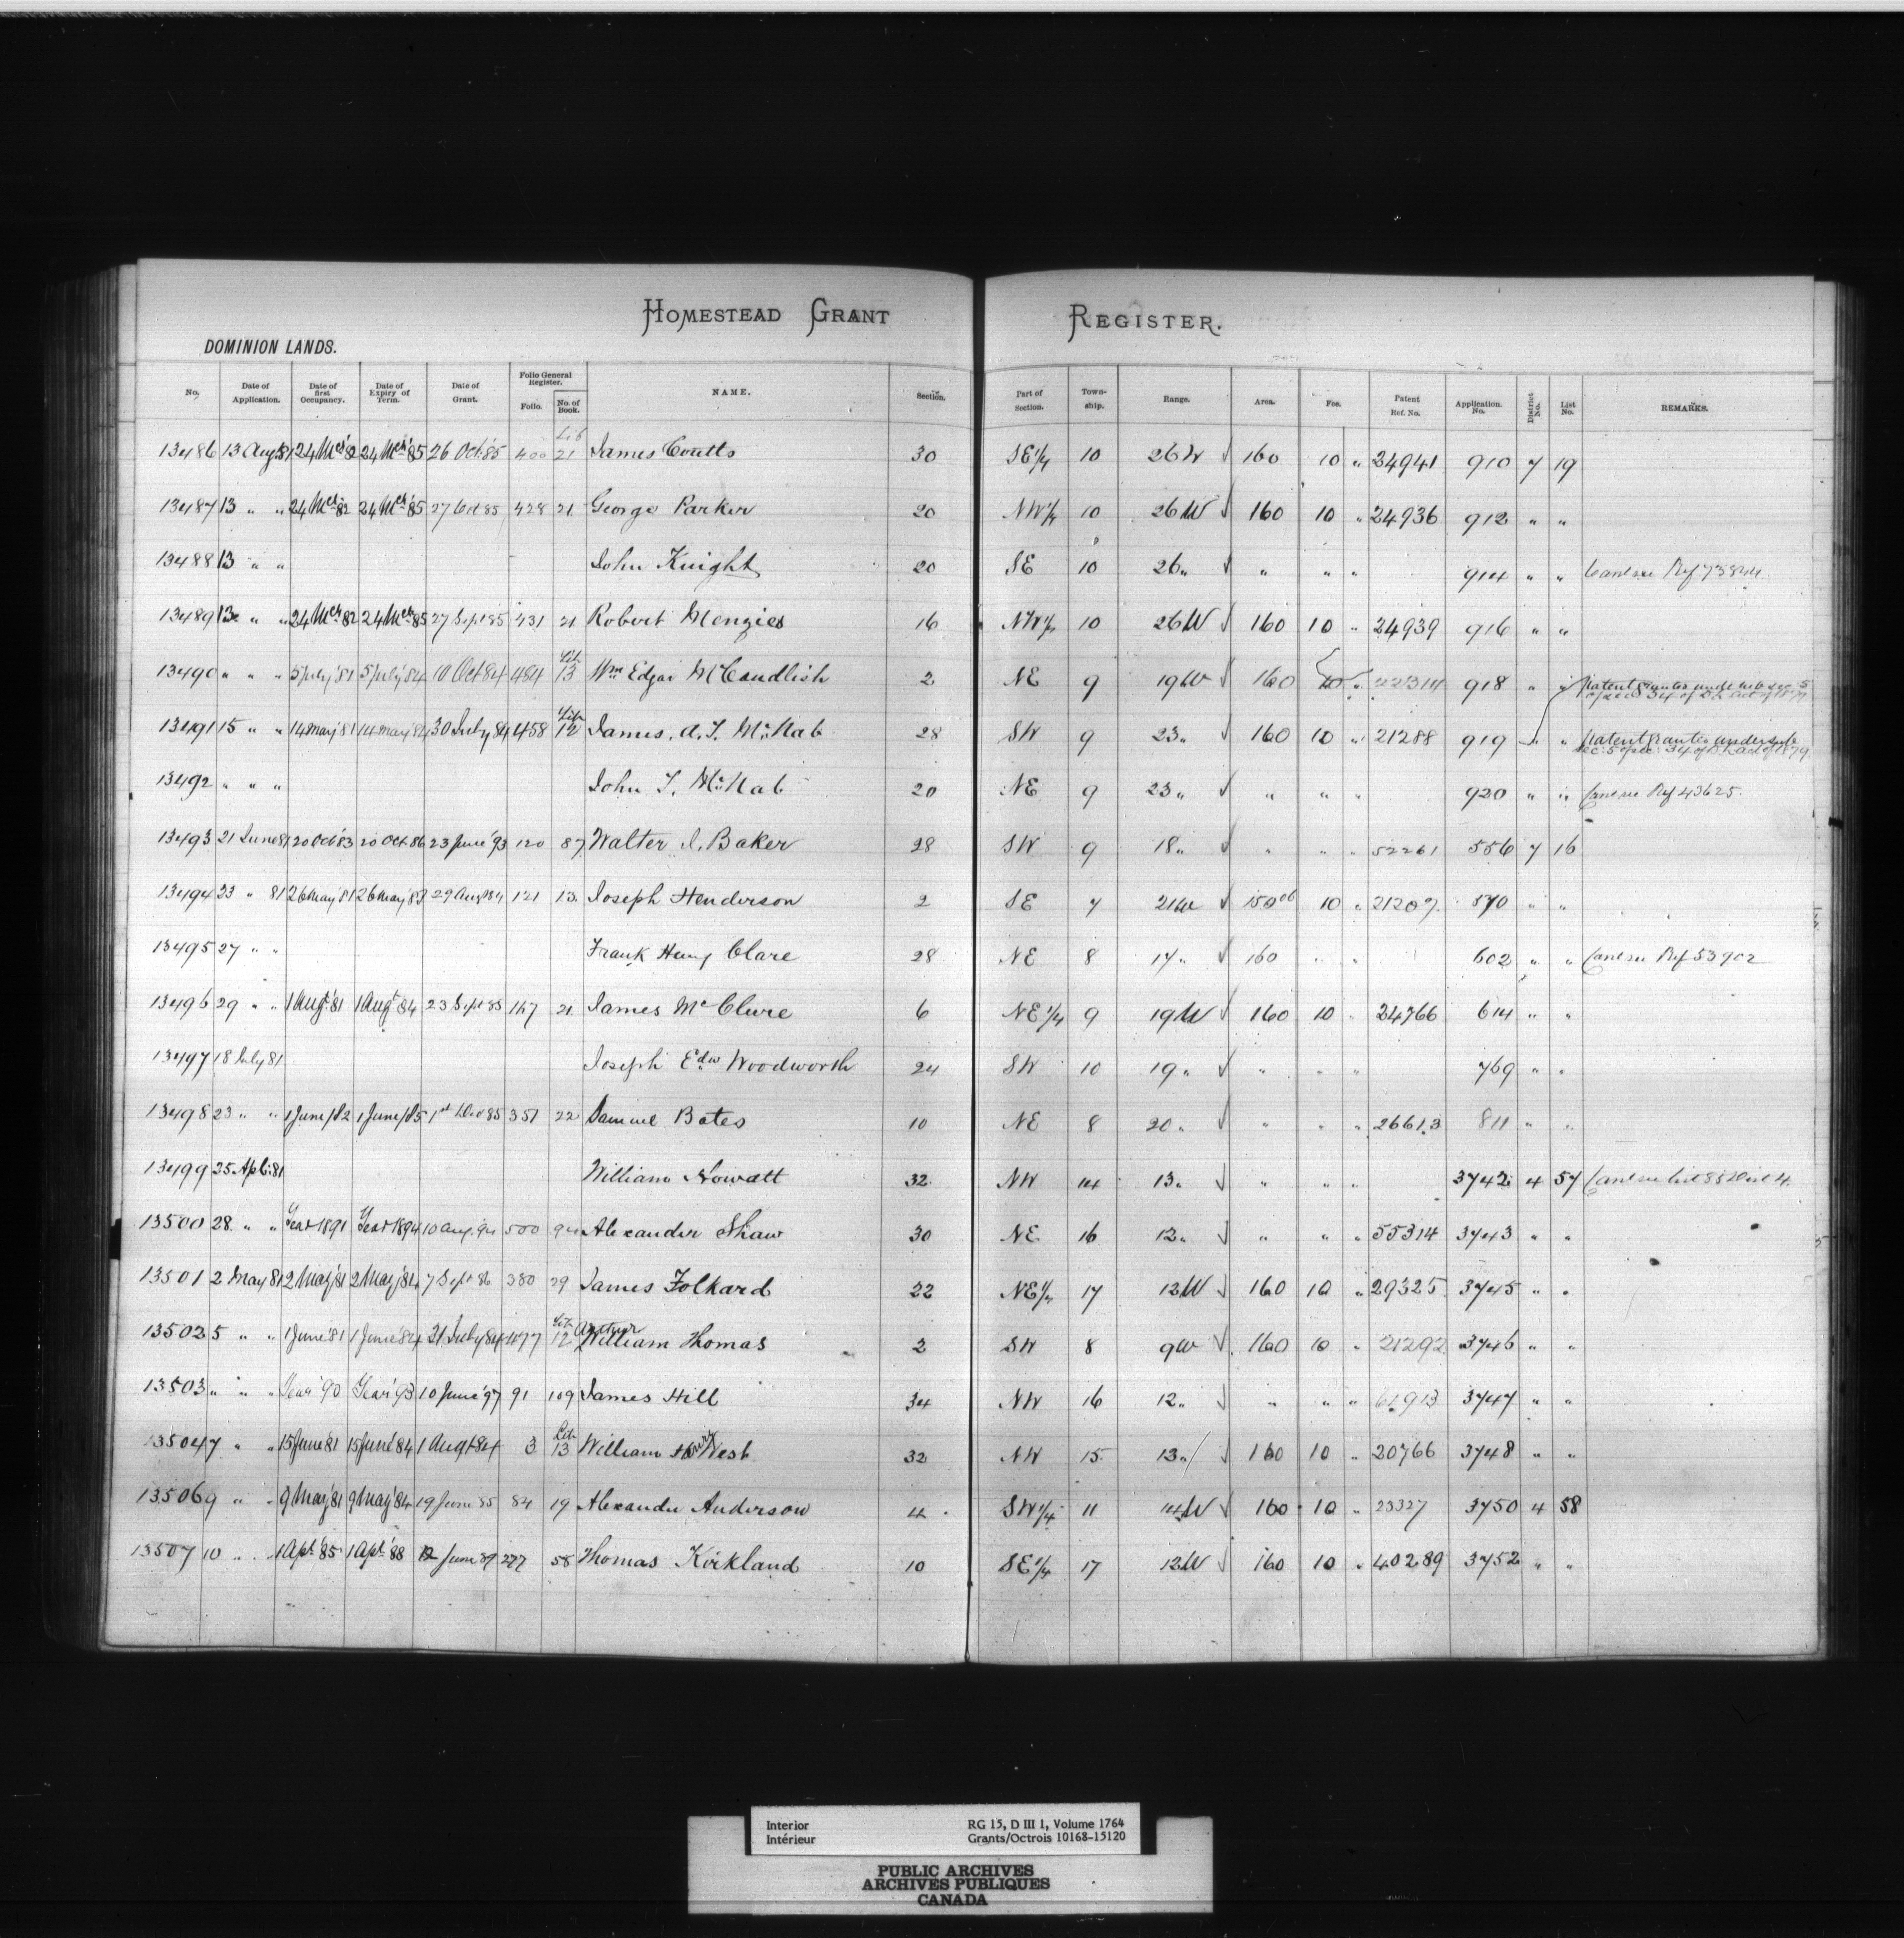 HOMESTEAD GRANT REGISTER.
DOMINION LANDS.
No. Date of Application. Date of first Occupancy. Date of Expiry of Term. Date of Grant. Folio General Register. Folio. No. of Book. NAME. Section. Part of Section. Town-ship. Range. Area. Fee. Patent Ref. No. Application. No. District No. List No. REMARKS.
13486 13 Aug 81 24 Mch 82 24 Mch 85 26 Oct 85 400 Lib 21 James Coutts 30 SE 1/4 10 26 W √ 160 10 " 24941 910 7 19
13487 13 " " 24 Mch 82 24 Mch 85 27 Oct 85 428 21 George Parker 20 NW 1/4 10 26 W √ 160 10 " 24936 912 " "
13488 13 " " John Knight 20 SE 10 26 " √ " " " 914 " " Ref 73844
13489 13 " " 24 Mch 82 24 Mch 85 27 Sept 85 431 21 Robert Menzies 16 NW 1/4 10 26 W √ 160 10 " 24939 916 " "
13490 " " " 5 July '81 5 July '84 10 Oct 84 484 Lib 13 Wm Edgar McCandlish 2 NE 9 19 W √ 160 10 " 22314 918 " " Patent granted under sub sec. 5 of sec. 34 of D.L. Act of 1879
13491 15 " " 14 May '81 14 May '84 30 July 84 458 Lib 12 James. A. T. McNab 28 SW 9 23 " √ 160 10 " 21288 919 " " Patent granted under sub sec: 5 of sec: 34 of D.L. Act of 1879
13492 " " " John T. McNab 20 NE 9 23 " √ " " " 920 " " Ref 43625.
13493 21 June 81 20 Oct '83 20 Oct 86 23 June '93 120 87 Walter I. Baker 28 SW 9 18 " √ " " " 52261 556 7 16
13494 23 " 81 26 May '81 26 May '83 29 Aug 84 121 13. Joseph Henderson 2 SE 7 21 W √ 10 " 21207 570 " "
13495 27 " " Frank Henry Clare 28 NE 8 17 " √ 160 " " 602 " " Ref 53902
13496 29 " " 1 Augt 81 1 Augt 84 23 Sept 85 147 21. James McClure 6 NE 1/4 9 19 W √ 160 10 " 24766 614 " "
13497 18 July 81 Joseph Edw Woodworth 24 SW 10 19 " √ " " " 769 " "
13498 23 " " 1 June/82 1 June/85 1st Dec 85 351 22 Samuel Bates 10 NE 8 20 " √ " " " 26613 811 " "
13499 25 Apl. 81 William Nowatt 32 NW 14 13 " √ " " " 3742 4 57
13500 28. " " Year 1891 Year 1894 10 Aug. 94 500 94 Alexander Shaw 30 NE 16 12 " √ " " " 55314 3743 " "
13501 2 May 81 2 May '81 2 May '84 7 Sept 86 380 29 James Folkard 22 NE 1/4 17 12 W √ 160 10 " 29325 3745 " "
13502 5 " " 1 June '81 1 June '84 31 July 84 477 Lib 12 Arthur William Thomas 2 SW 8 9 W √ 160 10 " 21292 3746 " "
13503 " " " Year '90 Year '93 10 June '97 91 109 James Hill 34 NW 16 12 " √ " " " 61913 3747 " "
13504 7 " " 15 June '81 15 June '84 1 Augt 84 3 Lib 13 William Henry West 32 NW 15 13 " √ 160 10 " 20766 3748 " "
13506 9 " " 9 May '81 9 May '84 19 June 85 84 19 Alexander Anderson 4 SW 1/4 11 14 W √ 160 10 " 23327 3750 4 58
13507 10 " " 1 Apl. 85 1 Apl. 88 12 June 89 277 58 Thomas Kirkland 10 SE 1/4 17 12 W √ 160 10 " 40289 3752 " "
Interior RG 15, D III 1, Volume 1764
Intérieur Grants/Octrois 10168-15120
PUBLIC ARCHIVES
ARCHIVES PUBLIQUES
CANADA